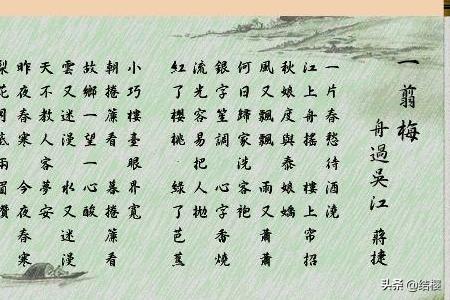 一翦梅
舟過吳江 蔣捷
一片春愁待酒澆
江上舟搖 樓上帘招
秋娘度與泰娘嬌
風又飄飄 雨又蕭蕭
何日歸家洗客袍
銀字笙調 心字香燒
流光容易把人拋
紅了櫻桃 綠了芭蕉
小巧樓臺眼界寬
朝捲簾看 暮捲簾看
故鄉一望一心酸
雲又迷漫 水又迷漫
天不教人客夢安
昨夜春寒 今夜春寒
梨花月底兩眉攢
头条 @结樱